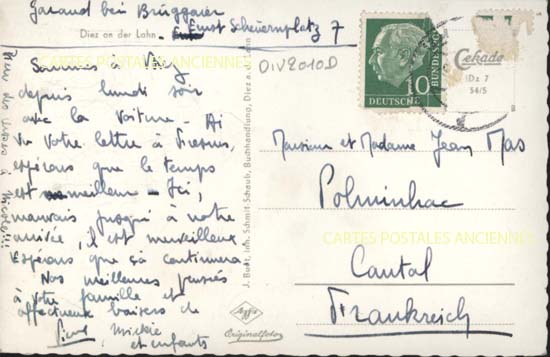 Garaud bei Brüggaier
Diez an der Lahn. Ernst Scheuernplatz 7
Sommes à
depuis lundi soir
avec la voiture - Ai
vu votre lettre à
espérons que le temps
est meilleur - Ici,
mauvais jusqu'à notre
arrivée, il est merveilleux.
Espérons que ça continuera
Nos meilleures pensées
à votre famille et
affectueux baisers de
Mickie
et enfants
DIV2010D
10
DEUTSCHE BUNDESPOST
Cekade
IDz 7
54/5
Monsieur et Madame Jean Mas
Polminhac
Cantal
Frankreich
CARTES POSTALES ANCIENNES
CARTES POSTALES ANCIENNES
J. Buet, Inh. Schmit-Schaub, Buchhandlung, Diez a. d. Lahn
Agfa
Originalfoto